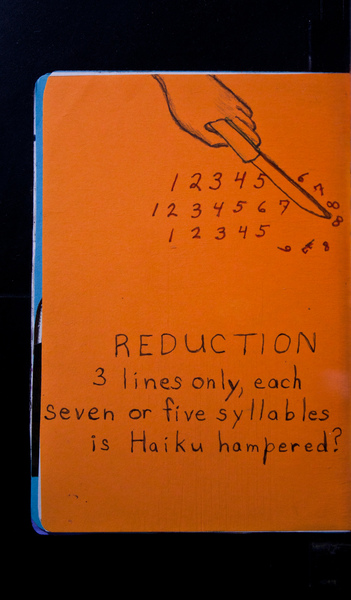 1 2 3 4 5 6 7 8
1 2 3 4 5 6 7 8
1 2 3 4 5 6 8
REDUCTION
3 lines only, each
seven or five syllables
is Haiku hampered?